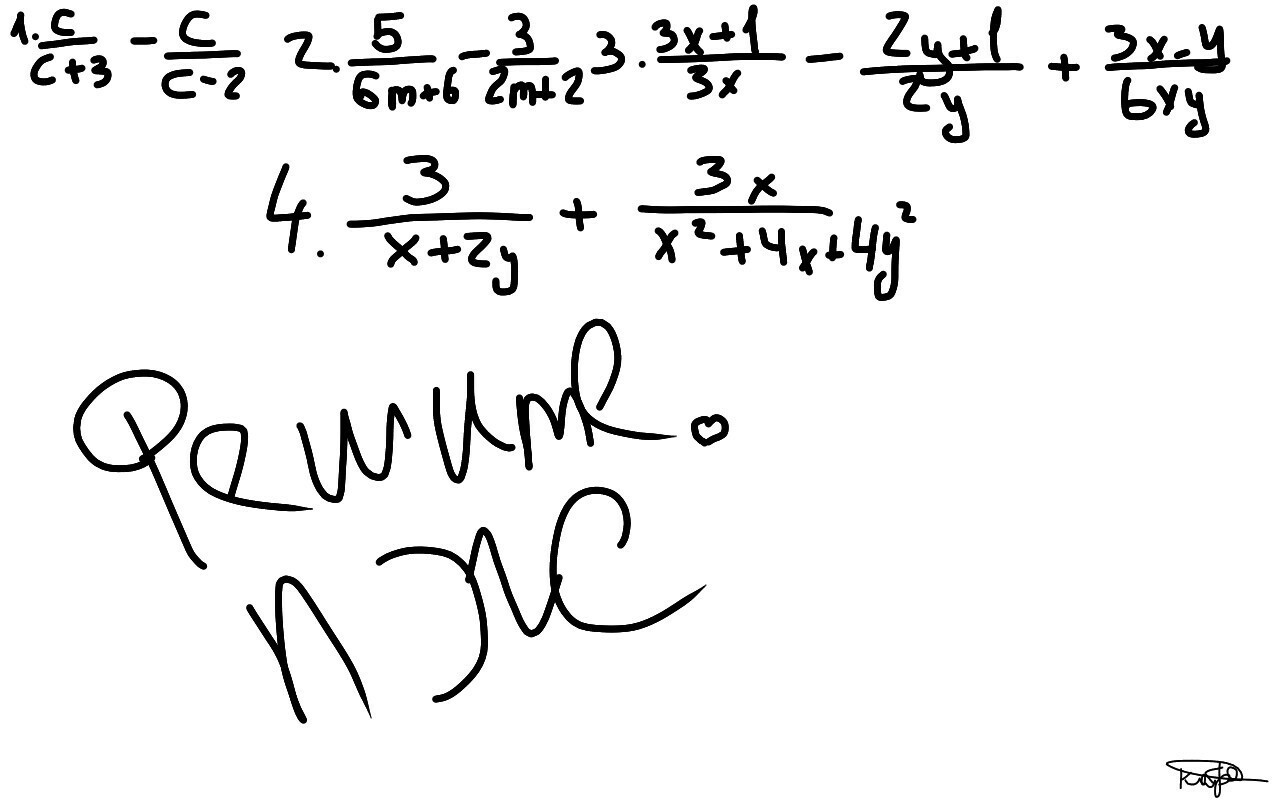 1. c/(c+3) - c/(c-2) 2. 5/(6m+6) - 3/(2m+2) 3. (3x+1)/(3x) - (2y+1)/(2y) + (3x-y)/(6xy)
4. 3/(x+2y) + 3x/(x²+4x+4y²)
Решите.
пж